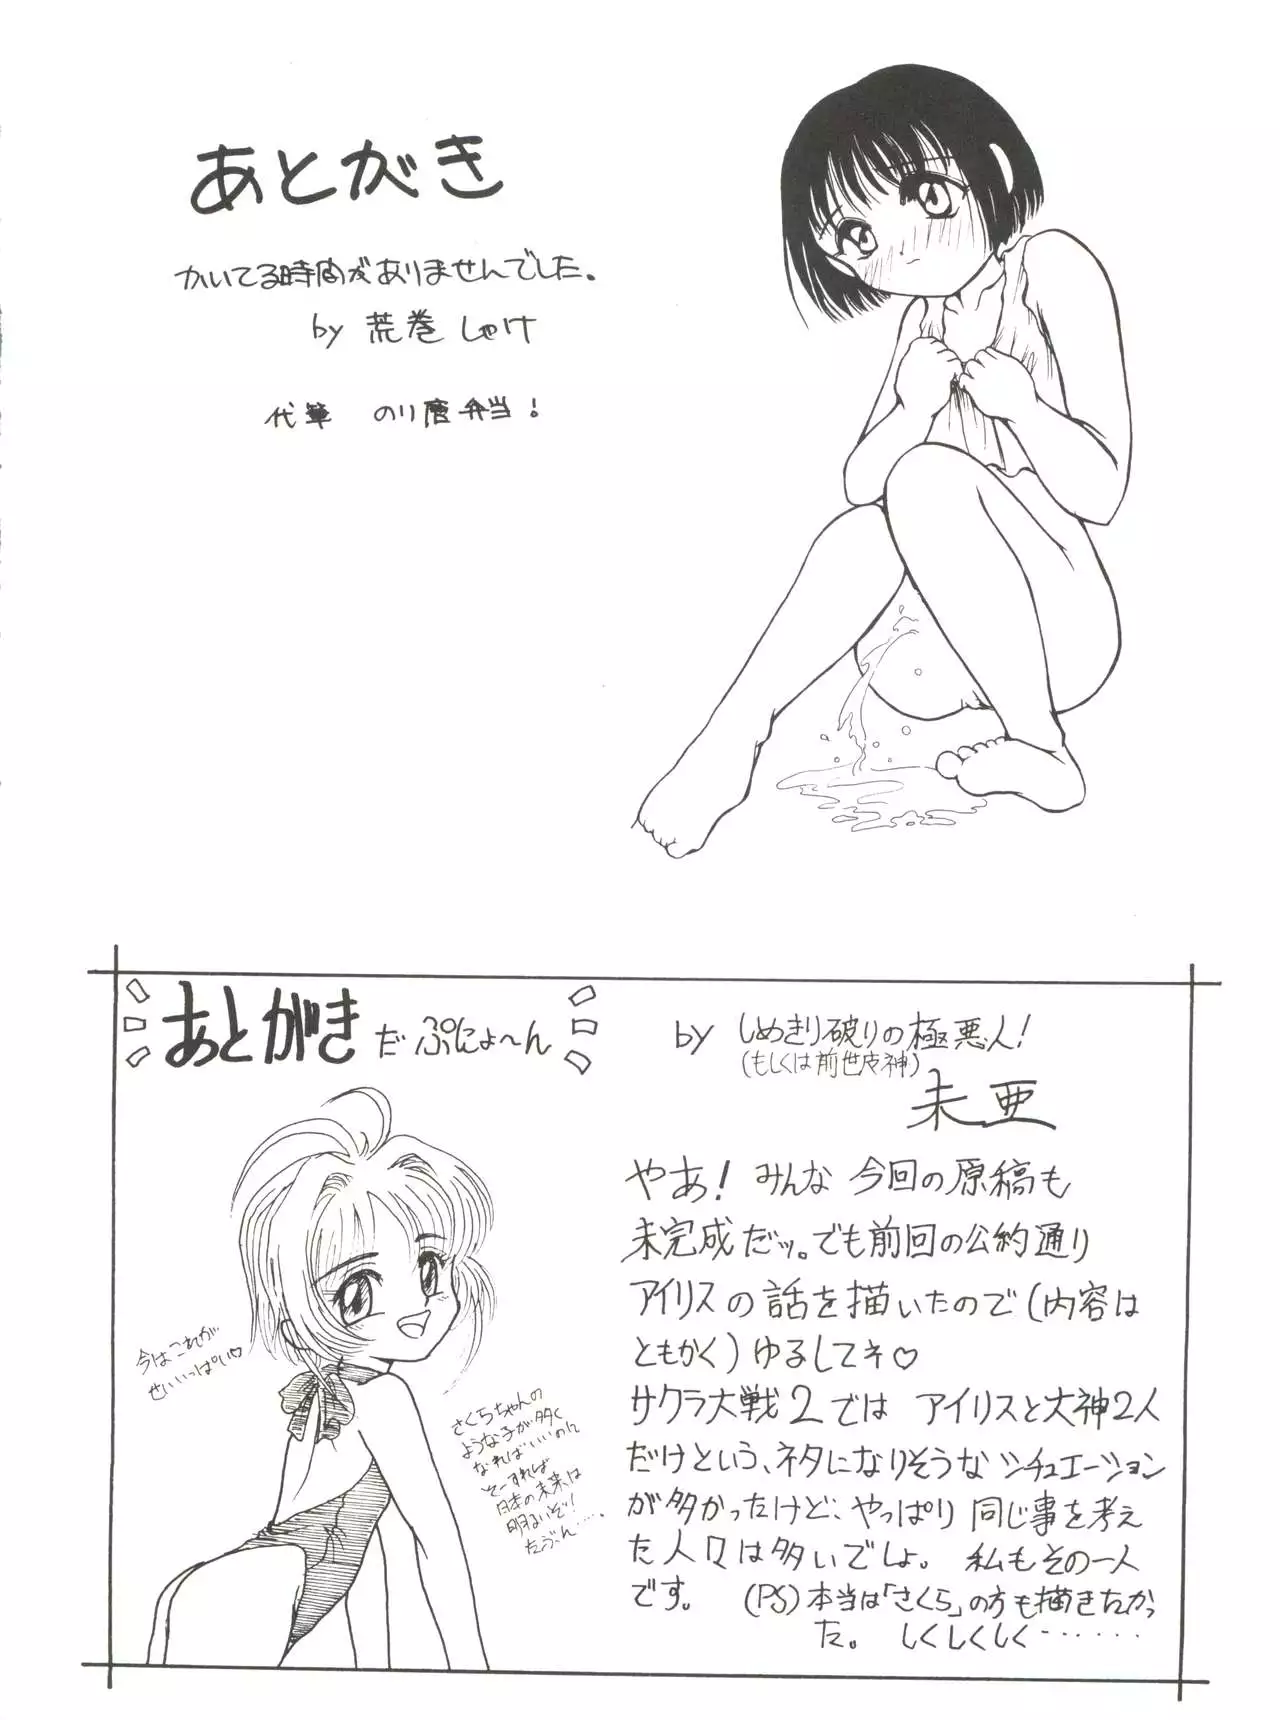 あとがき
かいてる時間がありませんでした。
by 荒巻しゃけ
代筆 のり麿弁当!
あとがき だ ぷにょ〜ん
by しめきり破りの極悪人!
(もしくは前世皮神)
未亜
やあ! みんな 今回の原稿も
未完成だッ。でも前回の公約通り
アイリスの話を描いたので(内容は
ともかく)ゆるしてネ♡
サクラ大戦2では アイリスと大神2人
だけという、ネタになりそうな シチュエーション
が多かったけど、やっぱり 同じ事を考え
た人々は多いでしょ。 私もその一人
です。 (PS)本当は「さくら」の方も描きたかっ
た。 しくしくしく‥‥‥‥
今はこれが
せいいっぱい♡
さくらちゃんの
ような子が多く
なればいいのに
そーすれば
日本の未来は
明るいぞ!
たぶん‥‥‥